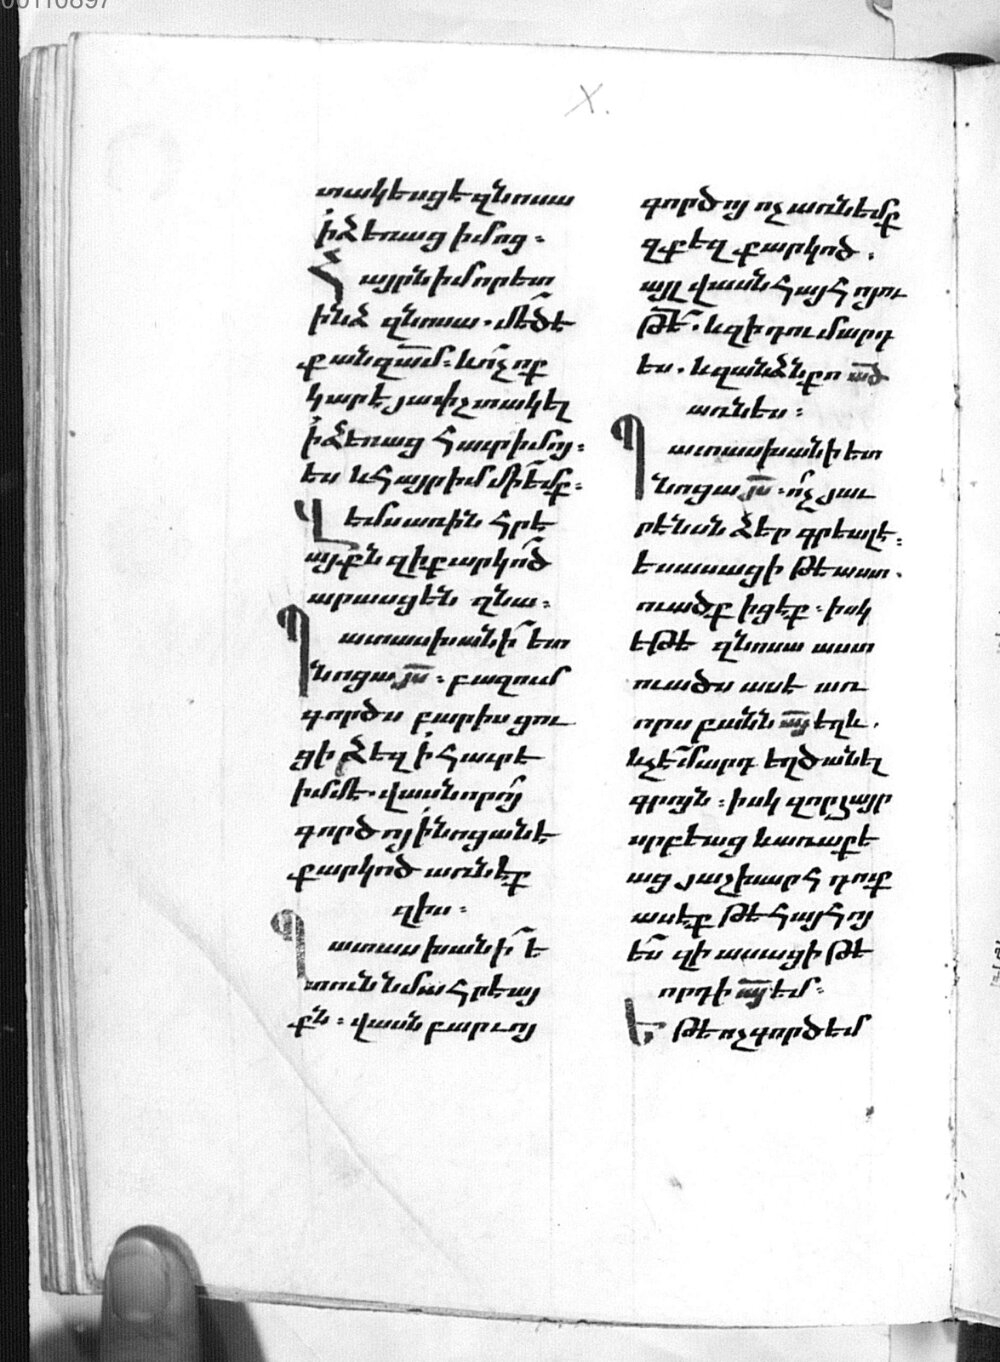 00110897
X.
տակեսցէ զնոսա
ի ձեռաց իմոց։
Հայրն իմ որ ետ
ինձ զնոսա. մեծ է
քան զամ՟. և ոչ ոք
կարէ յափշտակել
ի ձեռաց հաւր իմոյ։
ես և հայր իմ մի եմք։
Վէմս առին հրէ
այքն զի քարկոծ
արասցեն զնա։
Պատասխանի ետ
նոցա յս՟. բազում
գործս բարիս ցու
ցի ձեզ ի հաւրէ
իմմէ. վասն որոյ
գործոյ ի նոցանէ
քարկոծ առնէք
զիս։
Պատասխանի ե
տուն նմա հրէայ
քն. վասն բարւոյ
գործոյ ոչ առնեմք
զքեզ քարկոծ.
այլ վասն հայհոյու
թե՟. և զի դու մարդ
ես. և զանձն քո ած՟
առնես։
Պատասխանի ետ
նոցա յս՟. ոչ յաւ
րէնսն ձեր գրեալ է.
ես ասացի թէ աստ
ուածք իցէք. իսկ
եթէ զնոսա աստ
ուածս ասէ առ
որս բանն այ՟ եղև.
և չէ մարդ եղծանել
գրոյն. իսկ զոր հայր
սրբեաց և առաքե
աց յաշխարհ դուք
ասէք թէ հայհոյ
ես զի ասացի թէ
որդի այ՟ եմ։
Եթէ ոչ գործեմ